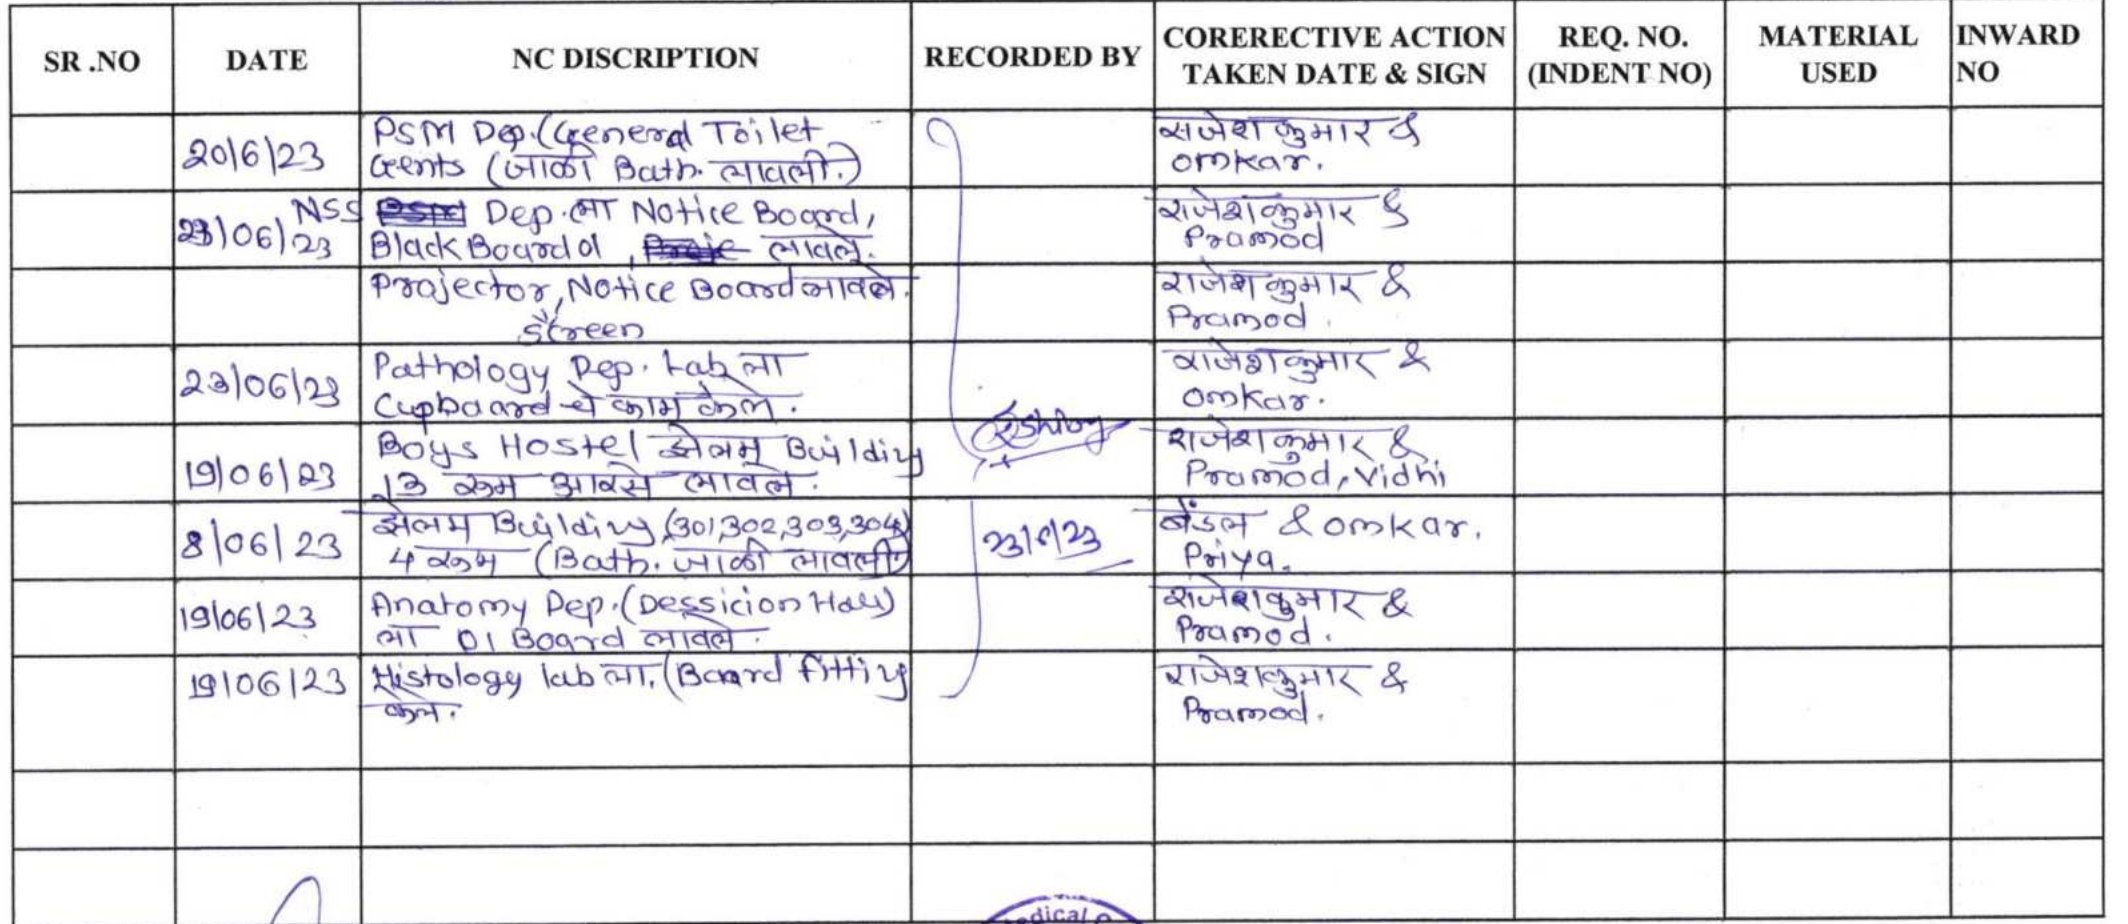 SR .NO DATE NC DISCRIPTION RECORDED BY CORERECTIVE ACTION TAKEN DATE & SIGN REQ. NO. (INDENT NO) MATERIAL USED INWARD NO
20/6/23 PSM Dep. (General Toilet Gents (जाळी Bath. लावली.) राजेशकुमार & Omkar.
23/06/23 NSS Dep. ला Notice Board, Black Board 01, लावले. राजेशकुमार & Pramod
Projector, Screen Notice Board लावले. राजेशकुमार & Pramod.
23/06/23 Pathology Dep. Lab ला Cupboard चे काम केले. राजेशकुमार & Omkar.
19/06/23 Boys Hostel झेलम Building 13 रूम आरसे लावले. राजेशकुमार & Pramod, Vidhi
8/06/23 झेलम Building (301,302,303,304) 4 रूम (Bath. जाळी लावली) & Omkar. Priya.
23/6/23
19/06/23 Anatomy Dep. (Dessicion Hall) ला 01 Board लावले. राजेशकुमार & Pramod.
19/06/23 Histology lab ला. (Board fitting केले. राजेशकुमार & Pramod.